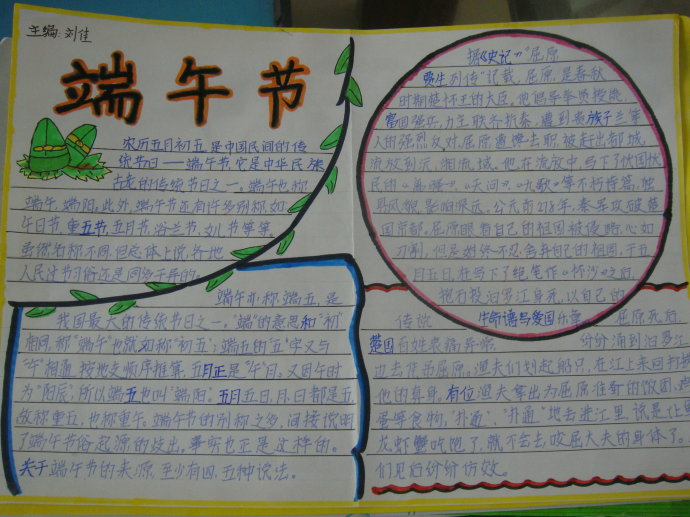 主编:刘佳
端午节
农历五月初五,是中国民间的传
统节日——端午节,它是中华民族
古老的传统节日之一。端午也称
端午,端阳。此外,端午节还有许多别称,如:
午日节、重五节,五月节、浴兰节、女儿节等等。
虽然名称不同,但总体上说,各地
人民过节习俗还是同多于异的。
端午亦称端五,是
我国最大的传统节日之一,"端"的意思和"初"
相同,称"端午"也就如称"初五";端五的"五"字又与
"午"相通,按地支顺序推算,五月正是"午"月。又因午时
为"阳辰",所以端五也叫"端阳"。五月五日,月、日都是五,
故称重五,也称重午。端午节的别称之多,间接说明
了端午节俗起源的歧出。事实也正是这样的。
关于端午节的来源,至少有四、五种说法。
据《史记》"屈原
贾生列传"记载,屈原,是春秋
时期楚怀王的大臣。他倡导举贤授能,
富国强兵,力主联齐抗秦,遭到贵族子兰等
人的强烈反对,屈原遭谗去职,被赶出都城,
流放到沅、湘流域。他在流放中,写下了忧国忧
民的《离骚》、《天问》、《九歌》等不朽诗篇,独
具风貌,影响深远。公元前278年,秦军攻破楚
国京都。屈原眼看自己的祖国被侵略,心如
刀割,但是始终不忍舍弃自己的祖国,于五
月五日,在写下了绝笔作《怀沙》之后,
抱石投汨罗江身死,以自己的
生命谱写爱国乐章
传说 屈原死后,
楚国百姓哀痛异常 纷纷涌到汨罗江
边去凭吊屈原。渔夫们划起船只,在江上来回打捞
他的真身。有位渔夫拿出为屈原准备的饭团,鸡
蛋等食物,"扑通、扑通"地丢进江里,说是让鱼
龙虾蟹吃饱了,就不会去咬屈大夫的身体了。
们见后纷纷仿效。